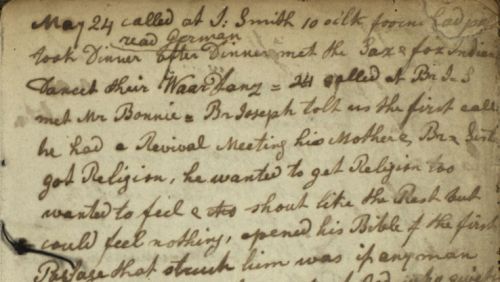 May 24 called at J: Smith 10 oilk foore Lad
read German
took Dinner after Dinner met the Sax & fox Indian
Dancet their Waar Tanz = 24 called at Br J. S
met Mr Bonnie = Br Joseph tolt us the first calle
he had a Revival Meeting his Mother & Br & Sist
got Religion, he wanted to get Religion too
wanted to feel & shout like the Rest but
could feel nothing, opened his Bible & the first
Passage that struck him was if any man